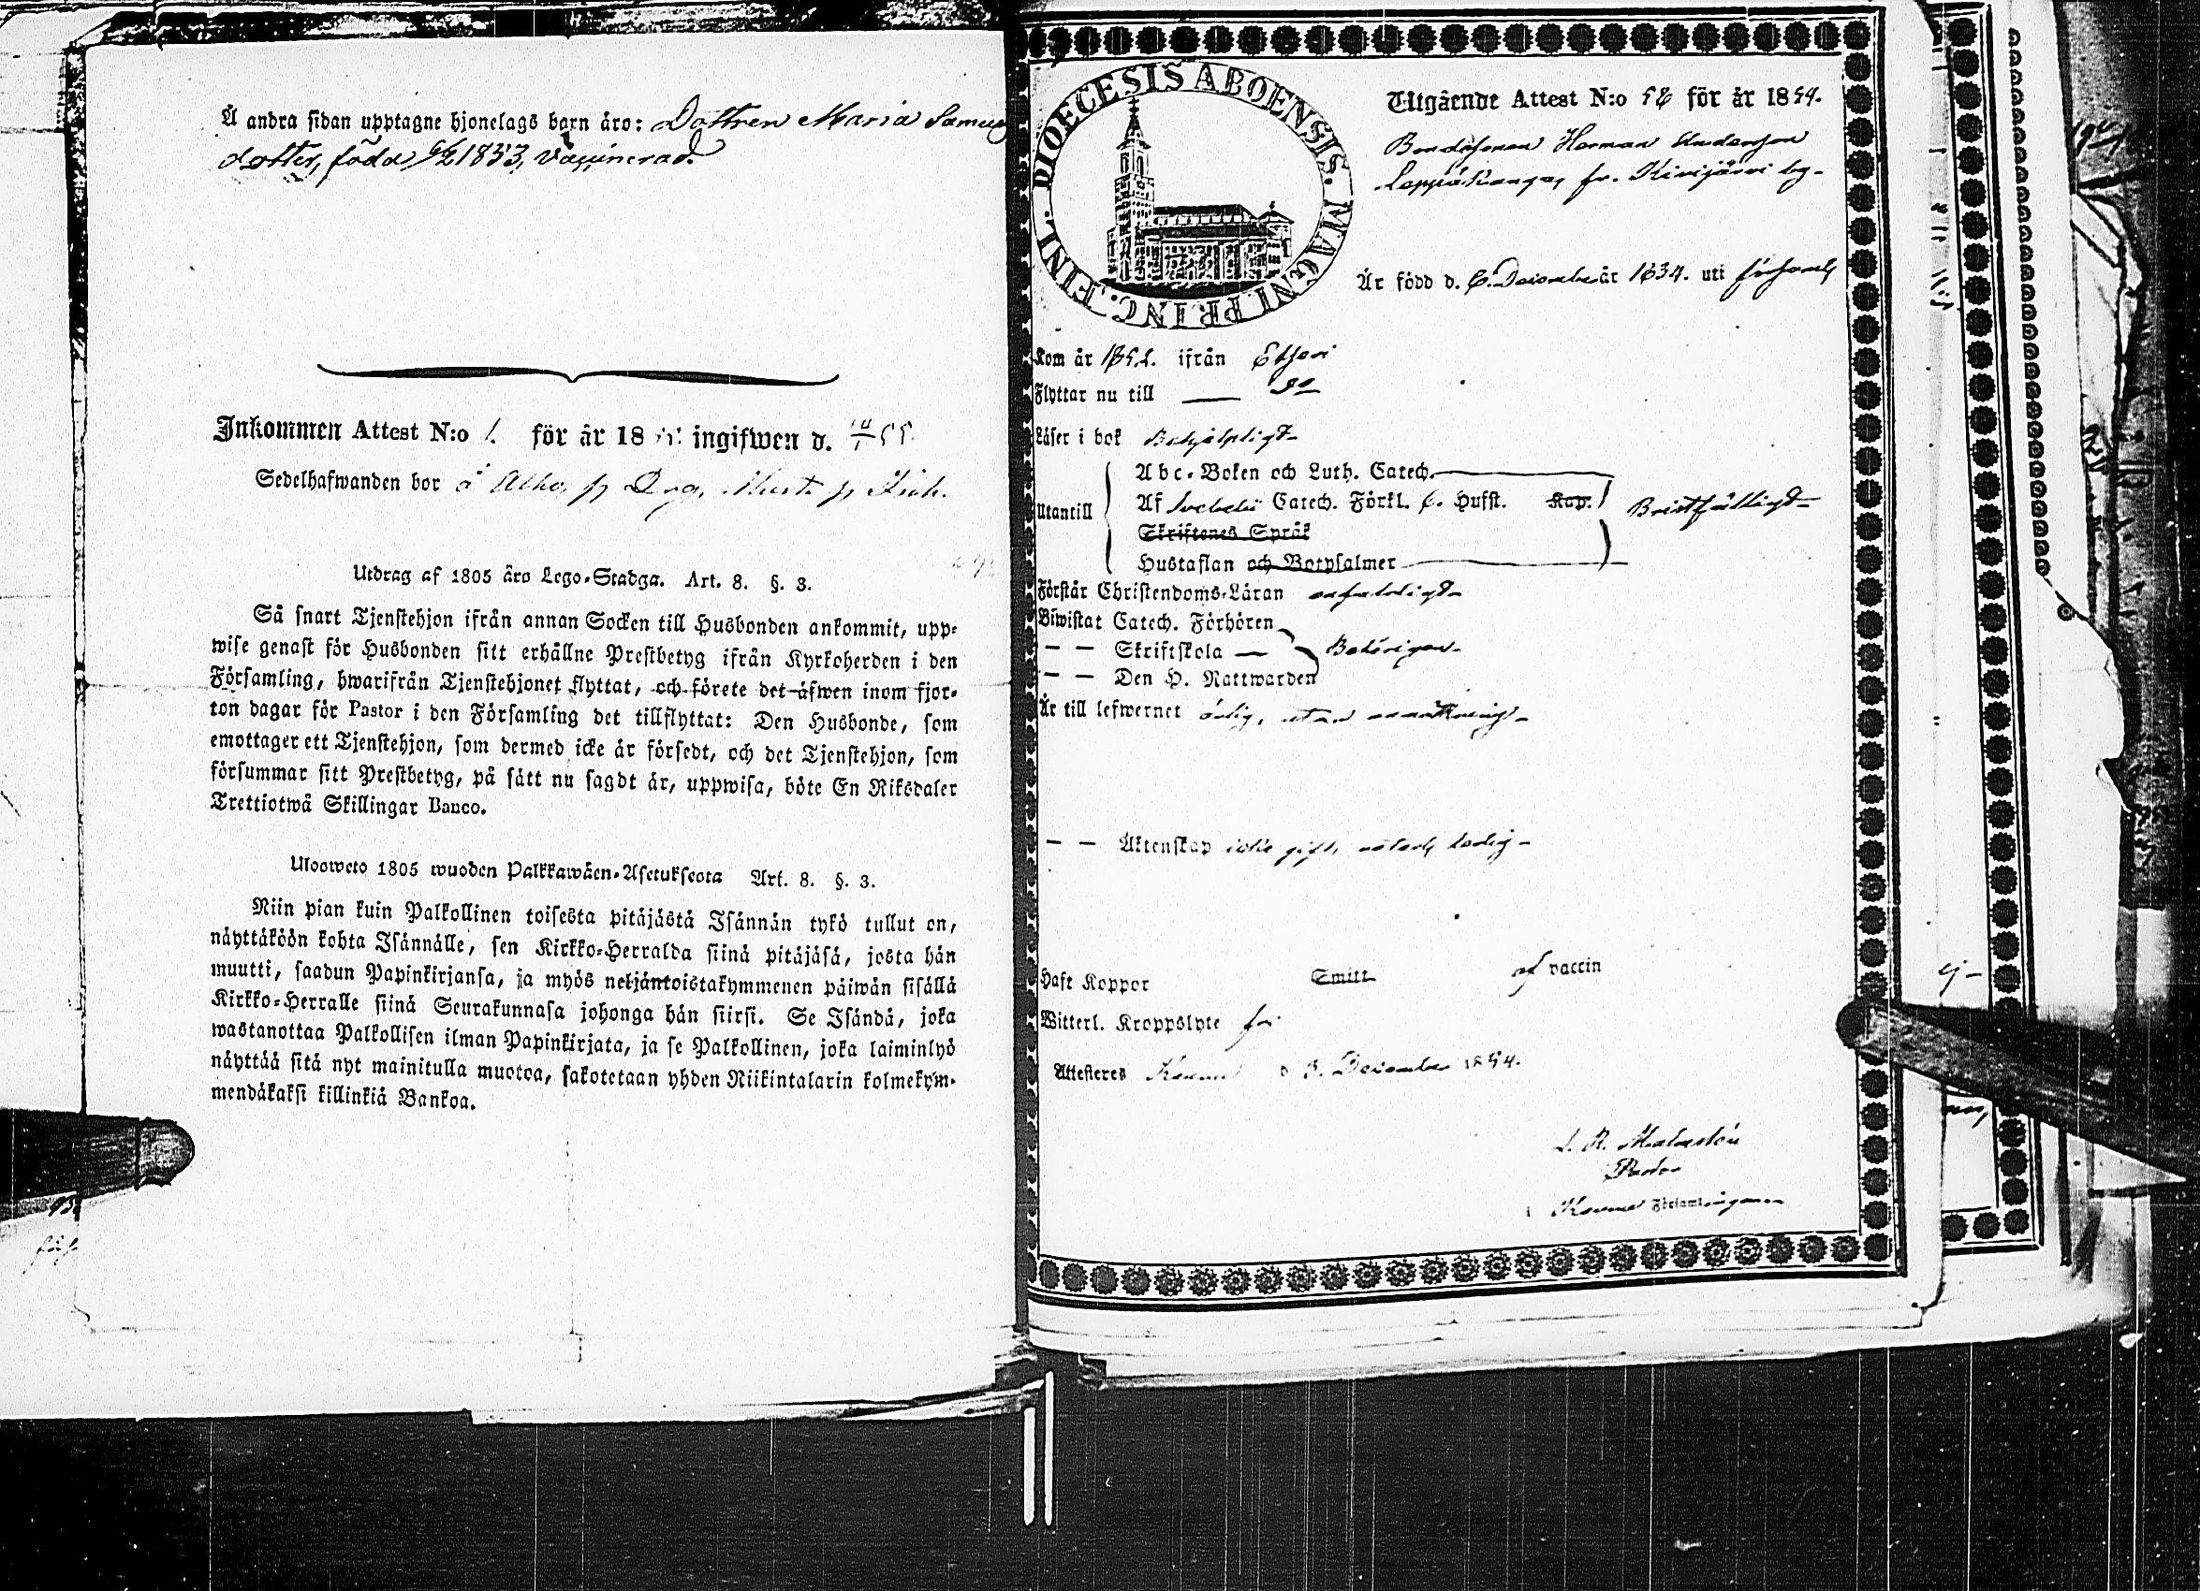 Å andra sidan upptagne hjonelags barn äro: Dottren Maria Samuels
dotter, född 6/2 1853, vaccinerad.
Inkommen Attest N:o 1. för år 18 55 ingifwen d.
Sedelhafwanden bor å
Utdrag af 1805 års Lego-Stadga. Art. 8. §. 3.
Så snart Tjenstehjon ifrån annan Socken till Husbonden ankommit, upp-
wise genast för Husbonden sitt erhållne Prestbetyg ifrån Kyrkoherden i den
Församling, hwarifrån Tjenstehjonet flyttat, och förete det äfwen inom fjor-
ton dagar för Pastor i den Församling det tillflyttat: Den Husbonde, som
emottager ett Tjenstehjon, som dermed icke är försedt, och det Tjenstehjon, som
försummar sitt Prestbetyg, på sätt nu sagdt är, uppwisa, böte En Riksdaler
Trettiotwå Skillingar Banco.
Ulosweto 1805 wuoden Palkkawäen-Asetuksesta Art. 8. §. 3.
Niin pian kuin Palkollinen toisesta pitäjästä Isännän tykö tullut on,
näyttäköön kohta Isännälle, sen Kirkko-Herralda siinä pitäjäsä, josta hän
muutti, saadun Papinkirjansa, ja myös neljäntoistakymmenen päiwän sisällä
Kirkko-Herralle siinä Seurakunnasa johonga hän siirsi. Se Isändä, joka
wastanottaa Palkollisen ilman Papinkirjata, ja se Palkollinen, joka laiminlyö
näyttää sitä nyt mainitulla muotoa, sakotetaan yhden Riikintalarin kolmekym-
mendäkaksi killinkiä Bankoa.
DIOECESIS ABOENSIS. MAGNI PRINC. FINL.
Utgående Attest N:o 52 för år 1854.
Bondesonen Herman Anderson
Leppäkangas fr. Kivijärvi by.
Är född d. 6. December år 1834. uti
Kom år 1852. ifrån Etseri
Flyttar nu till — Do
Läser i bok Behjelpligt
Abc-Boken och Luth. Catech.
Utantill Af Svebelii Catech. Förkl. 6. Hufst. Kap. Bristfälligt
Skriftenes Språk
Hustaflan och Botpsalmer
Förstår Christendoms-Läran enfaldigt
Biwistat Catech. Förhören
— — Skriftskola — Behörigen
— — Den H. Nattwarden
Är till lefwernet ärlig, utan anmärkning
— — Äktenskap icke gift, ledig
Haft Koppor Smitt af vaccin
Witterl. Kroppslyte fri
Attesteres d 3. December 1854.
Pastor
i Församlingarne